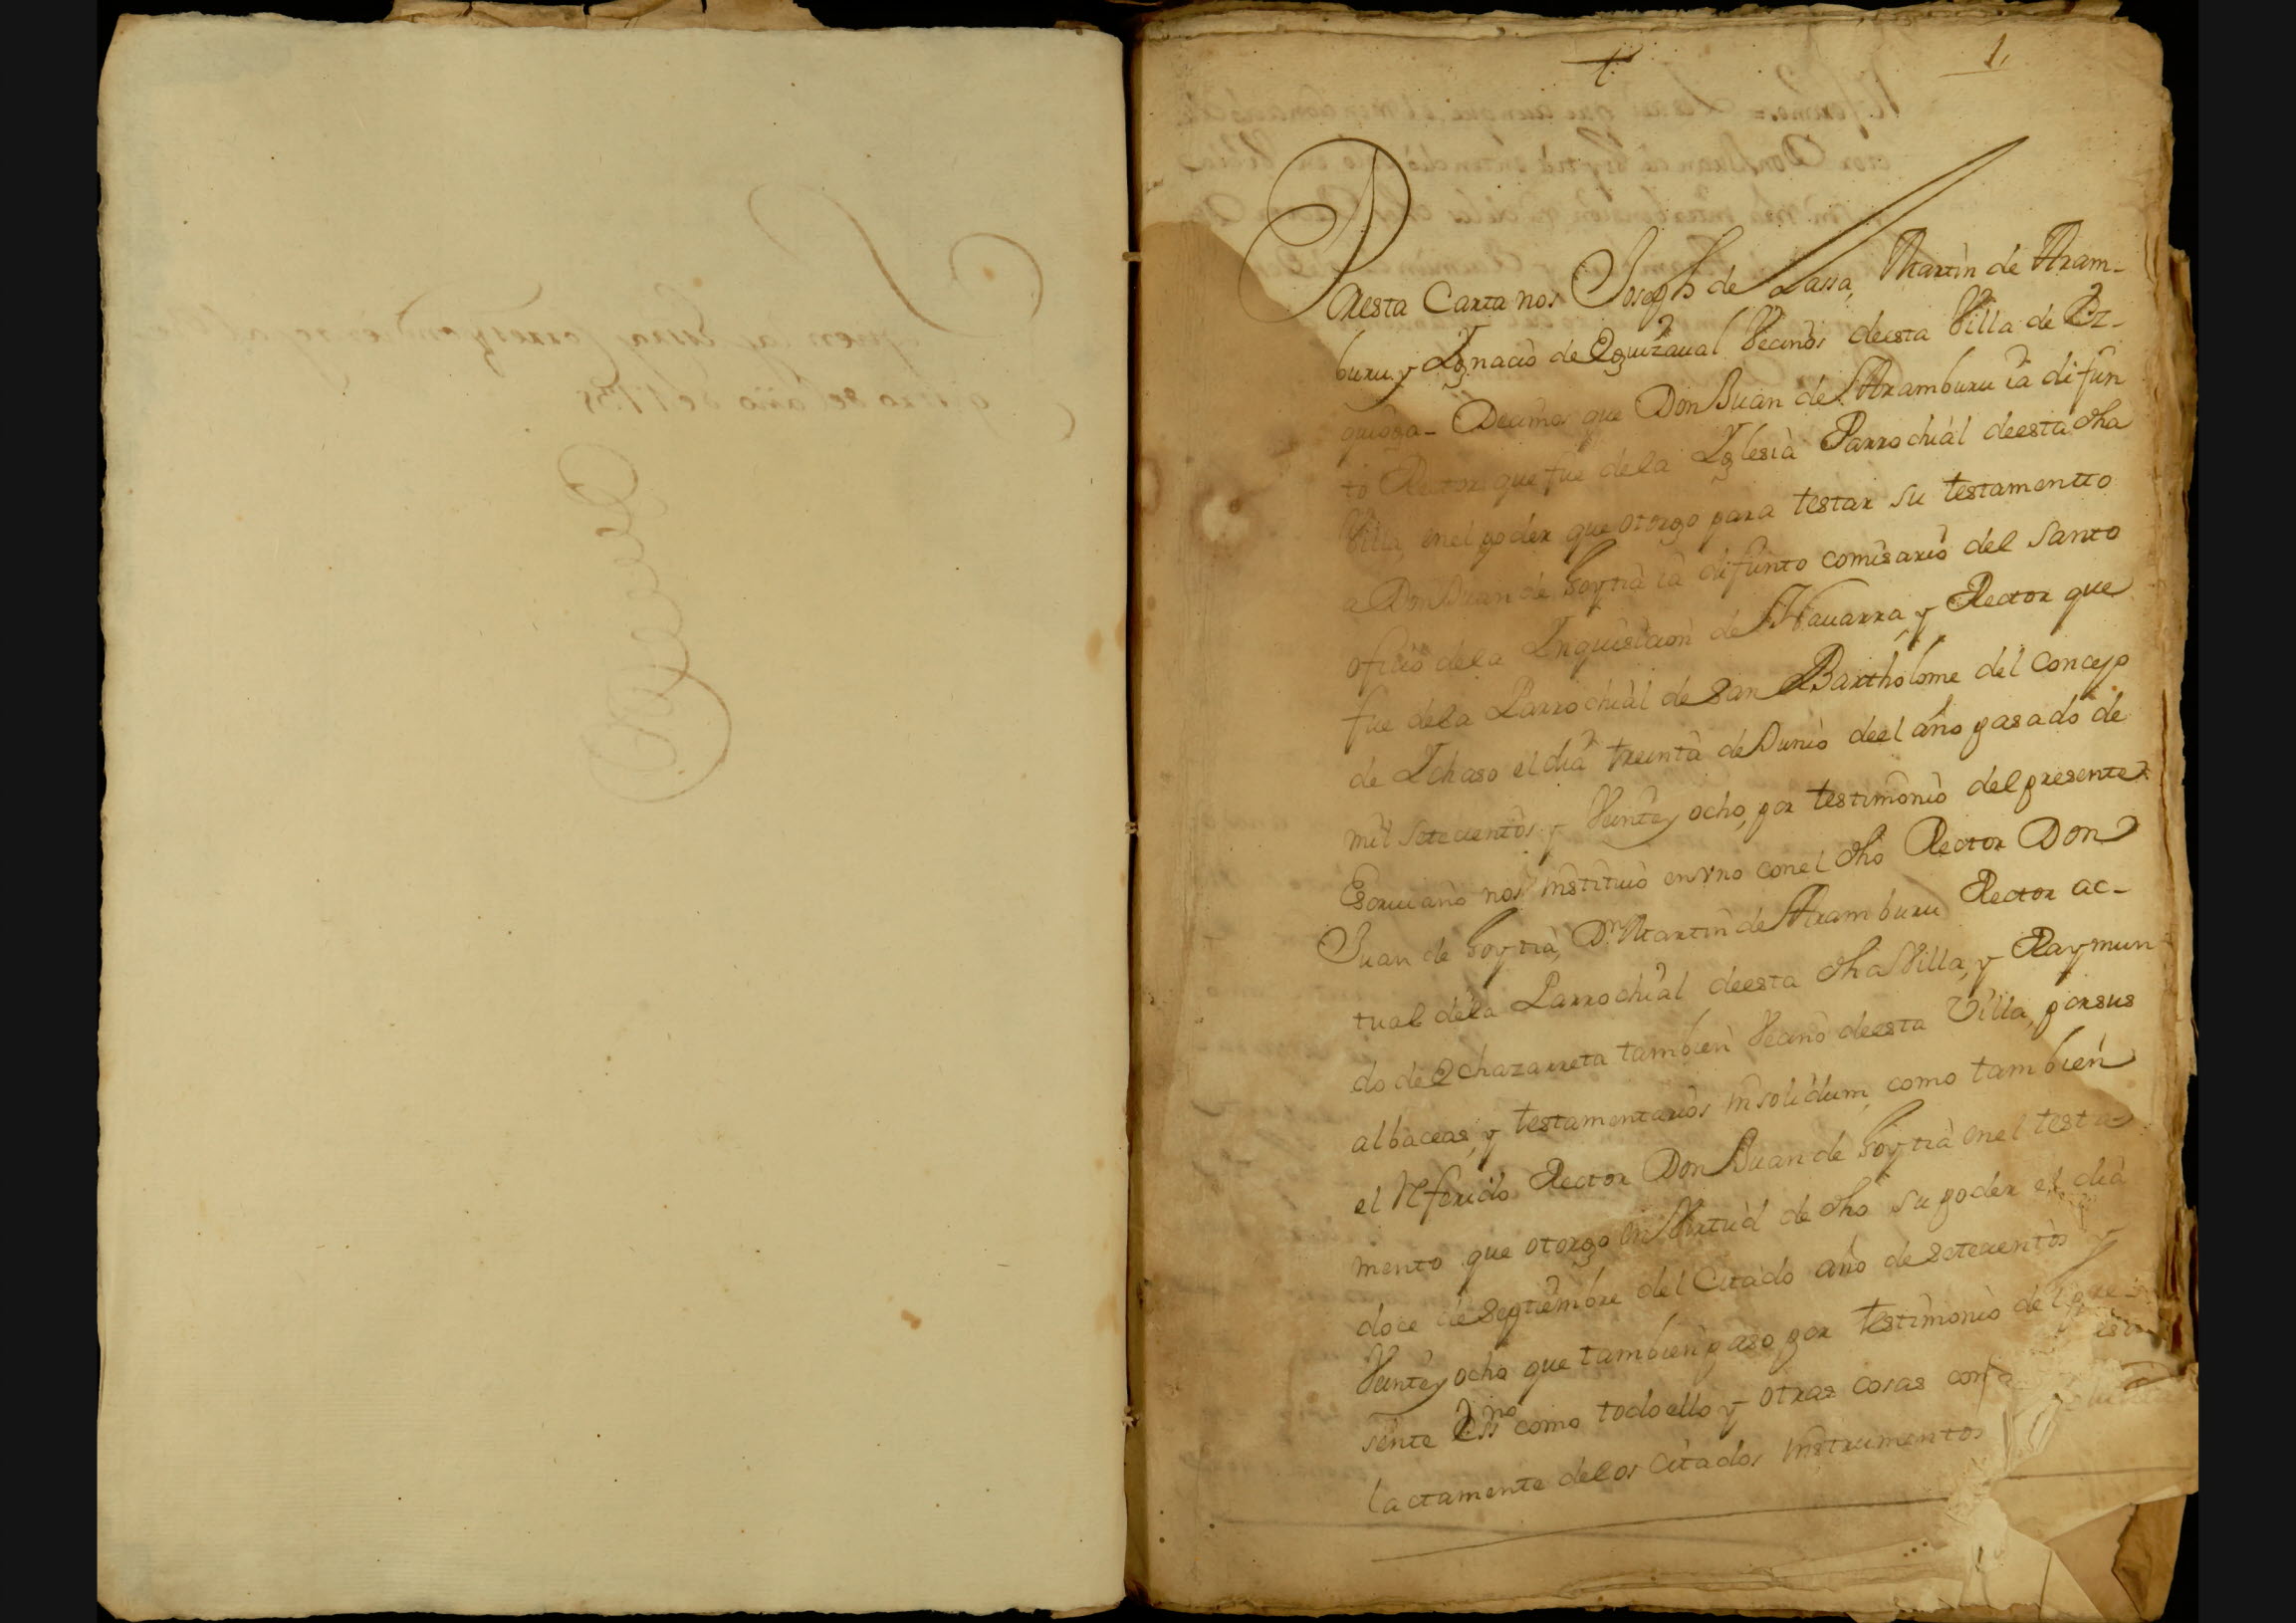 1,
Por esta Carta nos Joseph de Lassa, Martin de Aram-
buru y Ygnacio de Eguizaual Vecinos deesta Villa de Ez-
quioga - Decimos que Don Juan de Aramburu ia difun
to Rector que fue dela Yglesia Parrochial deesta dha
Villa, en el poder que otorgo para testar su testamentto
a Don Juan de Goytia ia difunto comisario del Santo
oficio dela Inquisicion de Nauarra, y Rector que
fue dela Parrochial de San Bartholome del Concejo
de Ichaso el dia treinta de Junio deel año pasado de
mil setecientos y Veinte y ocho, por testimonio del presente
Escriuano nos instituio en vno con el dho Rector Don
Juan de Goytia, Dn Martin de Aramburu Rector ac-
tual dela Parrochial deesta dha Villa, y Raymun
do de Echazarreta tambien Vecino deesta Villa, por sus
albaceas, y testamentarios insolidum, como tambien
el Referido Rector Don Juan de Goytia en el testa-
mento que otorgo en Virtud de dho su poder el dia
doce de Septiembre del Citado año de setecientos y
Veinte y ocho que tambien paso por testimonio del pre-
sente Essno como todo ello y otras cosas
lactamente delos Citados instrumentos